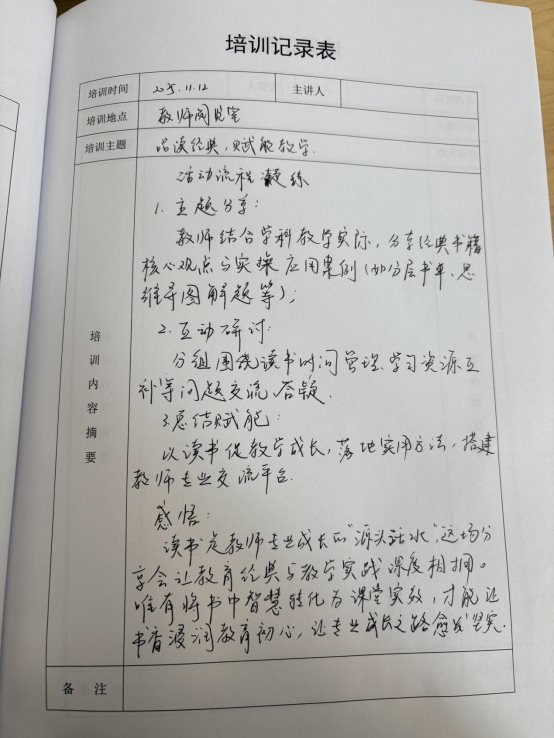 培训记录表
培训时间 2025.11.12 主讲人
培训地点 教师阅览室
培训主题 品读经典,赋能教学.
活动流程凝练
1. 主题分享:
教师结合学科教学实际,分享经典书籍
核心观点与实操应用案例(如分层书单、思
维导图解题等);
2. 互动研讨:
分组围绕读书时间管理、学习资源互
补等问题交流答疑.
3.总结赋能:
以读书促教学成长,落地实用方法,搭建
教师专业交流平台.
感悟:
读书是教师专业成长的“源头活水”,这场分
享会让教育经典与教学实践深度相拥。
唯有将书中智慧转化为课堂实效,才能让
书香浸润教育初心,让专业成长之路愈发坚实.
培训内容摘要
备 注